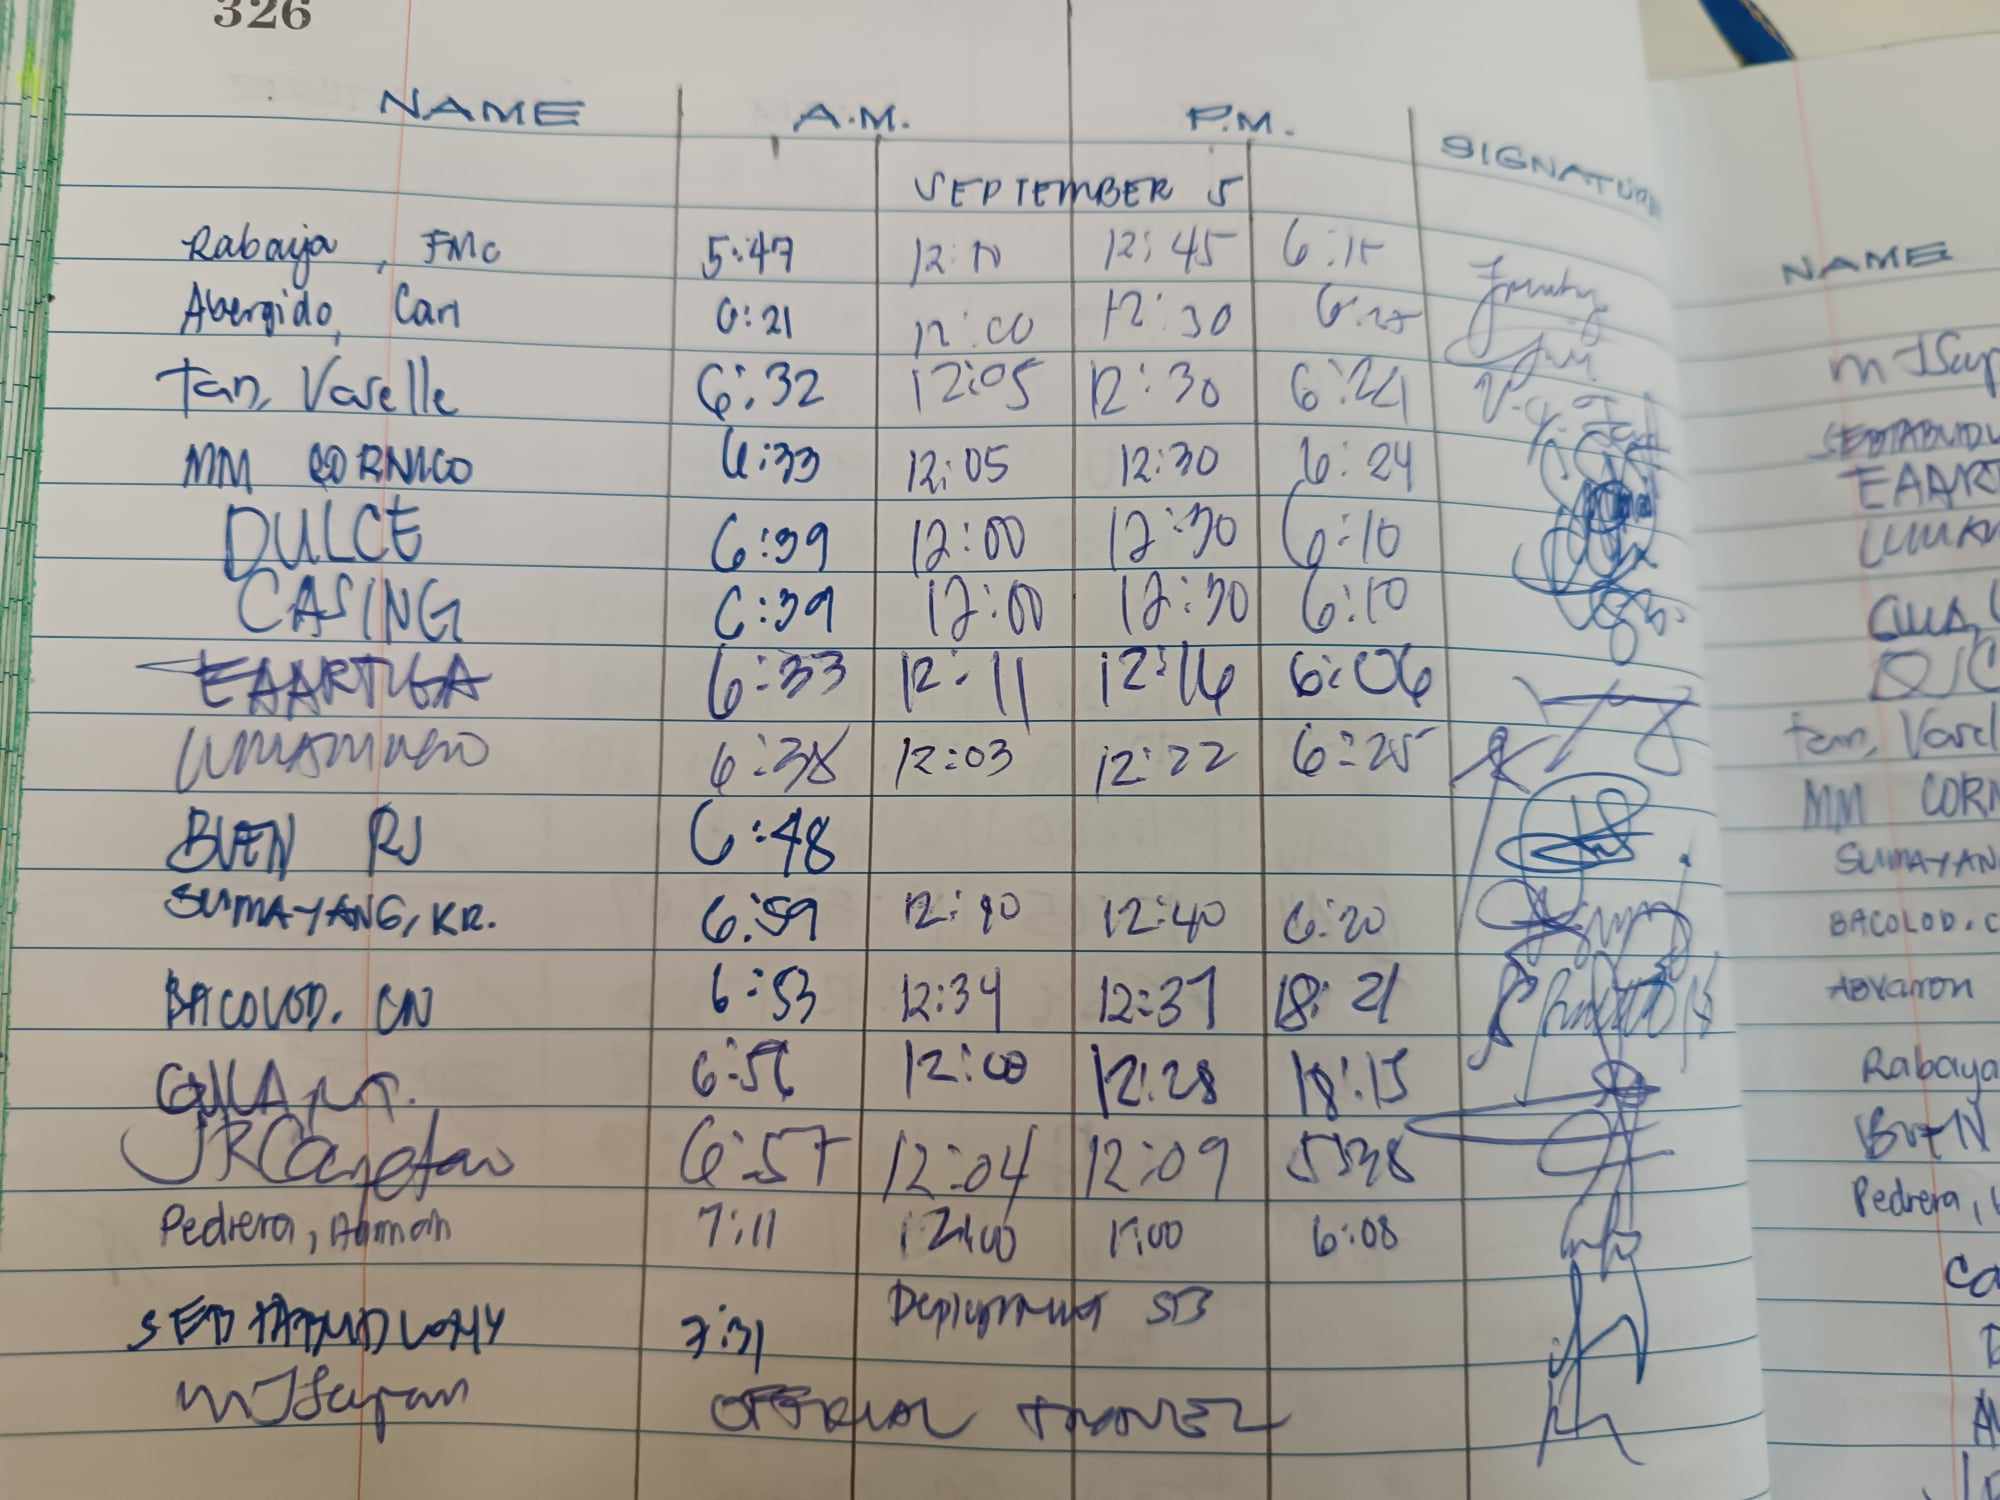 326
NAME A.M. P.M. SIGNATUR
SEPTEMBER 5
Rabaya, FMC 5:47 12:10 12:45 6:15
Abergido, Carl 6:21 12:00 12:30 6:25
Tan, Varelle 6:32 12:05 12:30 6:24
MM CORNICO 6:33 12:05 12:30 6:24
DULCE 6:39 12:00 12:30 6:10
CASING 6:39 12:00 12:30 6:10
EAARTIGA 6:33 12:11 12:16 6:06
6:38 12:03 12:22 6:25
BUEN RJ 6:48
SUMAYANG, KR. 6:59 12:10 12:40 6:20
BACOLOD. CN 6:53 12:34 12:37 18:21
6:56 12:00 12:28 18:15
6:57 12:04 12:09 5:38
Pedrera, 7:11 12:00 1:00 6:08
7:31 Deployment
MJSayson OFFICIAL TRAVEL
NAME
EAART
Tan, Varel
MM CORN
SUMAYANG
BACOLOD. C
Rabaya
BUEN
Pedrera,